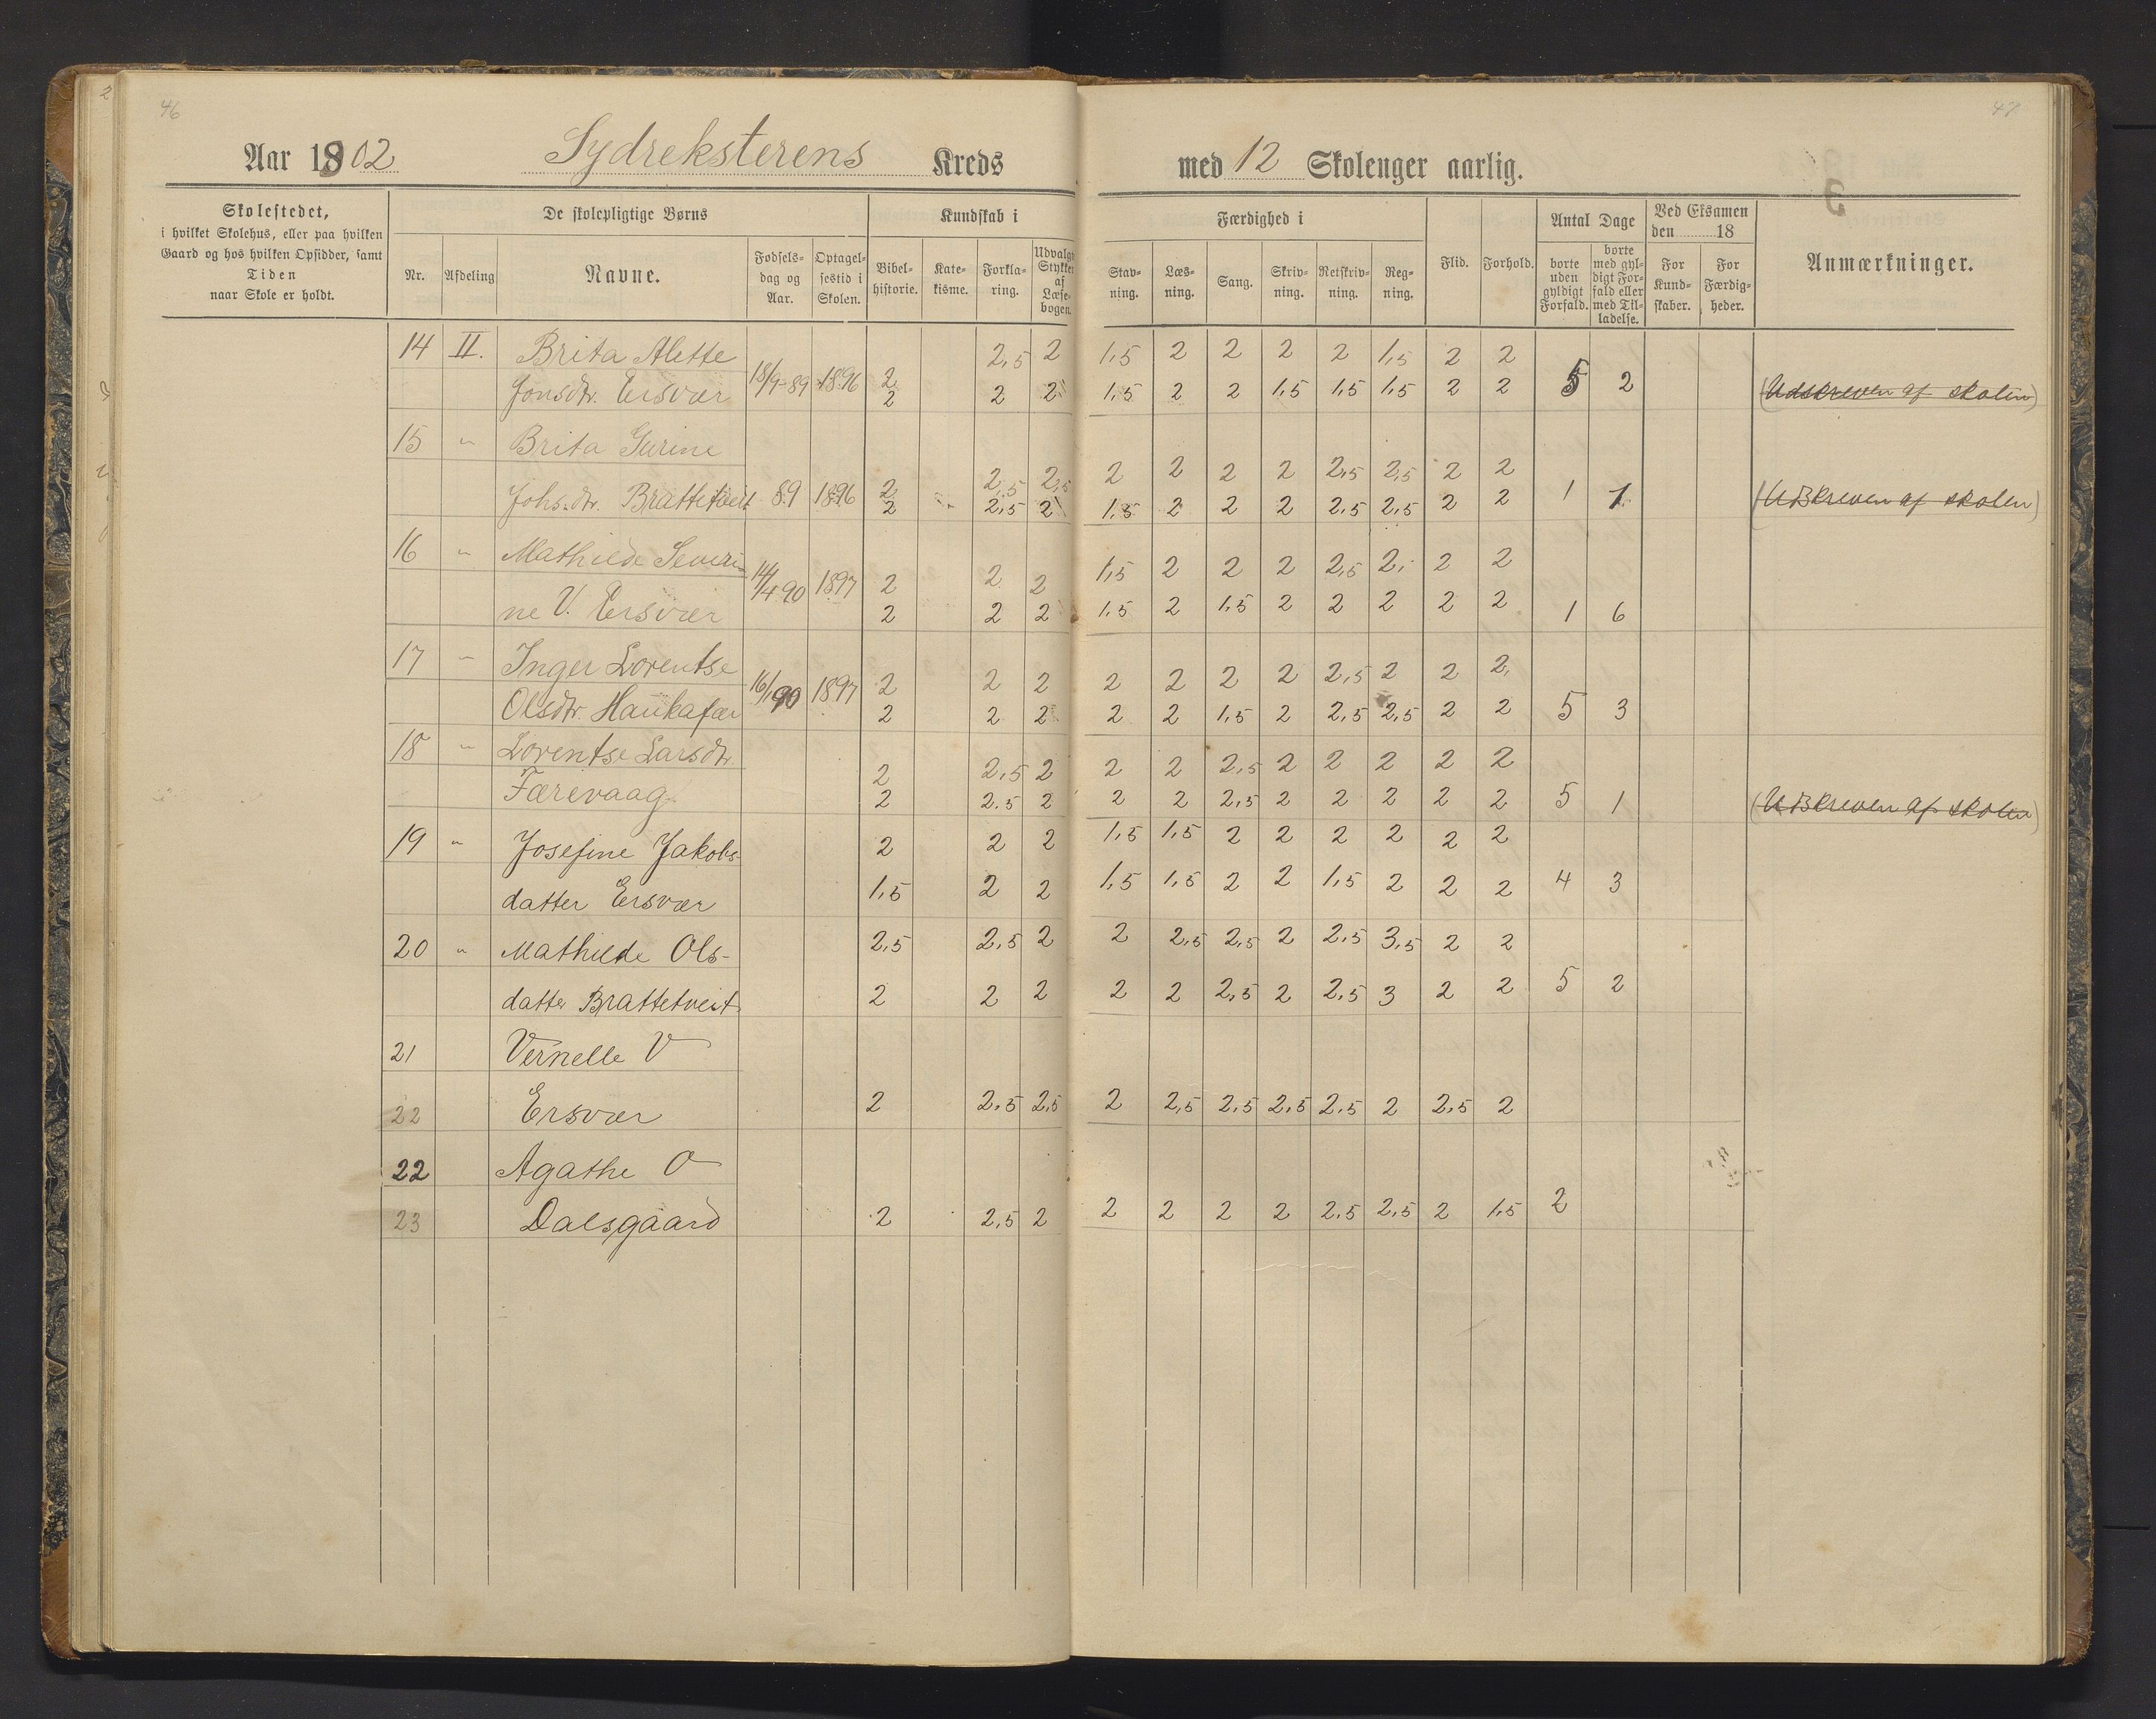 46
47
Aar 1902 Sydreksterens Kreds med 12 Skoleuger aarlig.
Skolestedet,
i hvilket Skolehus, eller paa hvilken
Gaard og hos hvilken Opsidder, samt
Tiden
naar Skole er holdt.
De skolepligtige Børns
Nr. Afdeling Navne. Fødsels-dag og Aar. Optagel-sestid i Skolen.
Kundskab i
Bibel-historie. Kate-kisme. Forkla-ring. Udvalgte Stykker af Læse-bogen.
Færdighed i
Stav-ning. Læs-ning. Sang. Skriv-ning. Retskriv-ning. Reg-ning.
Flid. Forhold.
Antal Dage
borte uden gyldigt Forfald. borte med gyl-digt For-fald eller med Til-ladelse.
Ved Eksamen
den 18
For Kund-skaber. For Færdig-heder.
Anmærkninger.
14 II. Brita Alette 2,5 2 1,5 2 2 2 2 1,5 2 2
Jonsdtr. Ersvær 18/9-89 1896 2 2 2 2 1,5 2 2 1,5 1,5 1,5 2 2 5 2 (Udskreven af skolen)
15 " Brita Gurine
2 2,5 2,5 2 2 2 2 2,5 2,5 2 2
Johs.dtr. Brattetveit 89 1896 2 2,5 2 1,5 2 2 2 2,5 2,5 2 2 1 1 (Udskreven af skolen)
16 " Mathilde Severi-
14/4 90 1897 2 2 2 1,5 2 2 2 2,5 2 2 2
ne V. Ersvær 2 2 2 1,5 2 1,5 2 2 2 2 2 1 6
17 " Inger Lorentse
16/1 90 1897 2 2 2 2 2 2 2 2,5 2 2 2
Olsdtr. Haukafær 2 2 2 2 2 1,5 2 2,5 2,5 2 2 5 3
18 " Lorentse Larsdtr.
2 2,5 2 2 2 2,5 2 2 2 2 2
Færevaag 2 2.5 2 2 2 2,5 2 2 2 2 2 5 1 (Udskreven af skolen)
19 " Josefine Jakobs- 2 2 2 1,5 1,5 2 2 2 2 2 2
datter Ersvær 1,5 2 2 1,5 1,5 2 2 1,5 2 2 2 4 3
20 " Mathilde Ols- 2,5 2,5 2 2 2,5 2,5 2 2,5 3,5 2 2
datter Brattetveit 2 2 2 2 2 2,5 2 2,5 3 2 2 5 2
21 Vernelle V
22 Ersvær 2 2,5 2,5 2 2,5 2,5 2,5 2,5 2 2,5 2
22 Agathe O
23 Dalsgaard 2 2,5 2 2 2 2 2 2,5 2,5 2 1,5 2